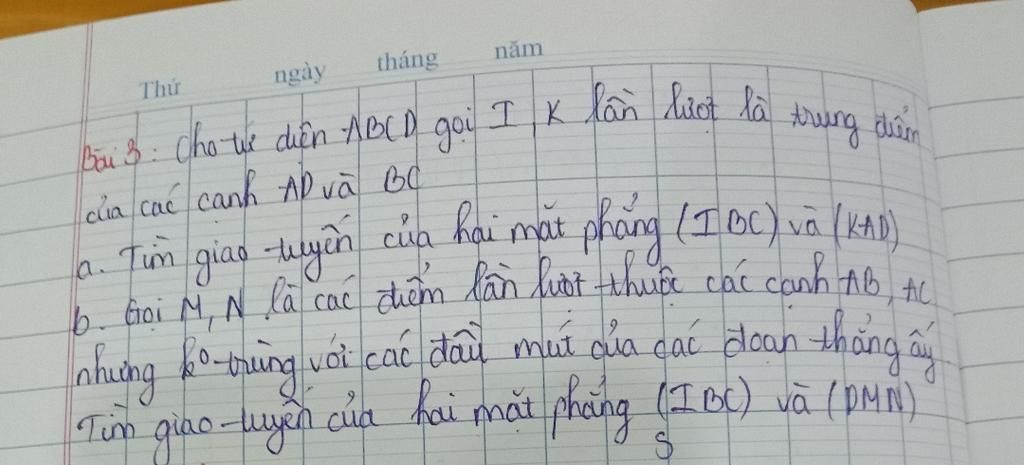 Thứ ngày tháng năm
Bài 3: Cho tứ diện ABCD gọi I, K lần lượt là trung điểm
của các cạnh AD và BC
a. Tìm giao tuyến của hai mặt phẳng (IBC) và (KAD)
b. Gọi M, N là các điểm lần lượt thuộc các cạnh AB, AC
nhưng ko trùng với các đầu mút của các đoạn thẳng ấy
Tìm giao tuyến của hai mặt phẳng (IBC) và (DMN)
S